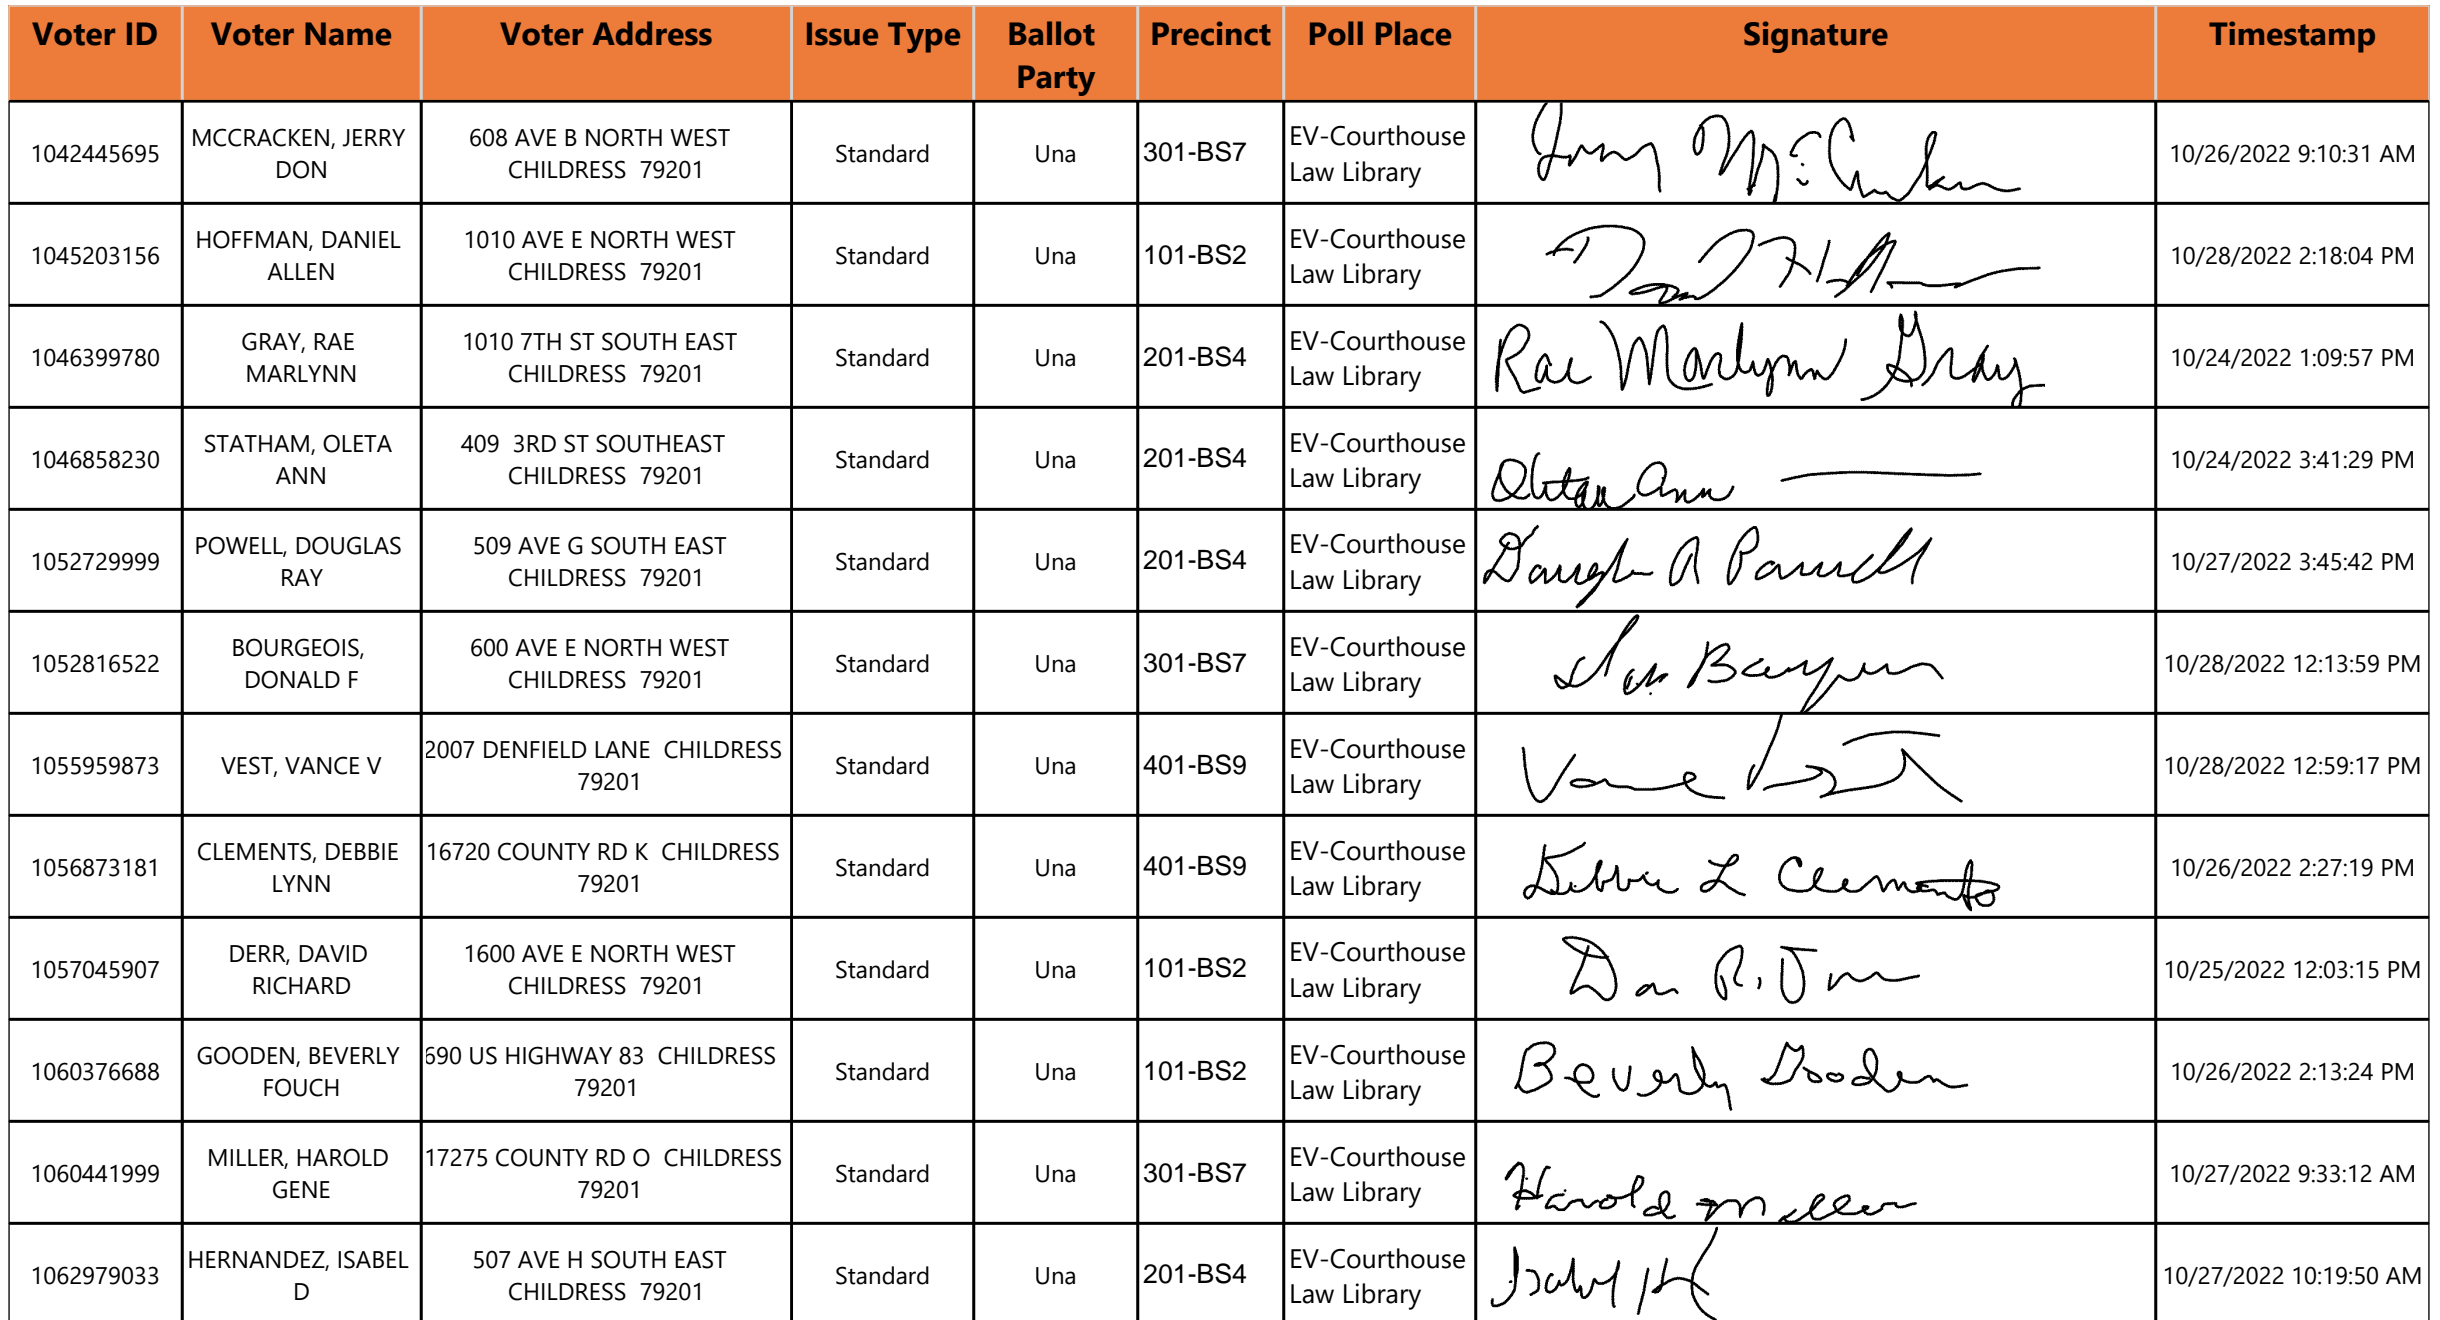 Voter ID Voter Name Voter Address Issue Type Ballot Party Precinct Poll Place Signature Timestamp
1042445695 MCCRACKEN, JERRY DON 608 AVE B NORTH WEST CHILDRESS 79201 Standard Una 301-BS7 EV-Courthouse Law Library Jerry McCracken 10/26/2022 9:10:31 AM
1045203156 HOFFMAN, DANIEL ALLEN 1010 AVE E NORTH WEST CHILDRESS 79201 Standard Una 101-BS2 EV-Courthouse Law Library 10/28/2022 2:18:04 PM
1046399780 GRAY, RAE MARLYNN 1010 7TH ST SOUTH EAST CHILDRESS 79201 Standard Una 201-BS4 EV-Courthouse Law Library Rae Marlynn Gray 10/24/2022 1:09:57 PM
1046858230 STATHAM, OLETA ANN 409 3RD ST SOUTHEAST CHILDRESS 79201 Standard Una 201-BS4 EV-Courthouse Law Library Ann 10/24/2022 3:41:29 PM
1052729999 POWELL, DOUGLAS RAY 509 AVE G SOUTH EAST CHILDRESS 79201 Standard Una 201-BS4 EV-Courthouse Law Library 10/27/2022 3:45:42 PM
1052816522 BOURGEOIS, DONALD F 600 AVE E NORTH WEST CHILDRESS 79201 Standard Una 301-BS7 EV-Courthouse Law Library 10/28/2022 12:13:59 PM
1055959873 VEST, VANCE V 2007 DENFIELD LANE CHILDRESS 79201 Standard Una 401-BS9 EV-Courthouse Law Library Vance 10/28/2022 12:59:17 PM
1056873181 CLEMENTS, DEBBIE LYNN 16720 COUNTY RD K CHILDRESS 79201 Standard Una 401-BS9 EV-Courthouse Law Library Debbie L Clements 10/26/2022 2:27:19 PM
1057045907 DERR, DAVID RICHARD 1600 AVE E NORTH WEST CHILDRESS 79201 Standard Una 101-BS2 EV-Courthouse Law Library 10/25/2022 12:03:15 PM
1060376688 GOODEN, BEVERLY FOUCH 690 US HIGHWAY 83 CHILDRESS 79201 Standard Una 101-BS2 EV-Courthouse Law Library Beverly Gooden 10/26/2022 2:13:24 PM
1060441999 MILLER, HAROLD GENE 17275 COUNTY RD O CHILDRESS 79201 Standard Una 301-BS7 EV-Courthouse Law Library Harold Miller 10/27/2022 9:33:12 AM
1062979033 HERNANDEZ, ISABEL D 507 AVE H SOUTH EAST CHILDRESS 79201 Standard Una 201-BS4 EV-Courthouse Law Library Isabel H 10/27/2022 10:19:50 AM